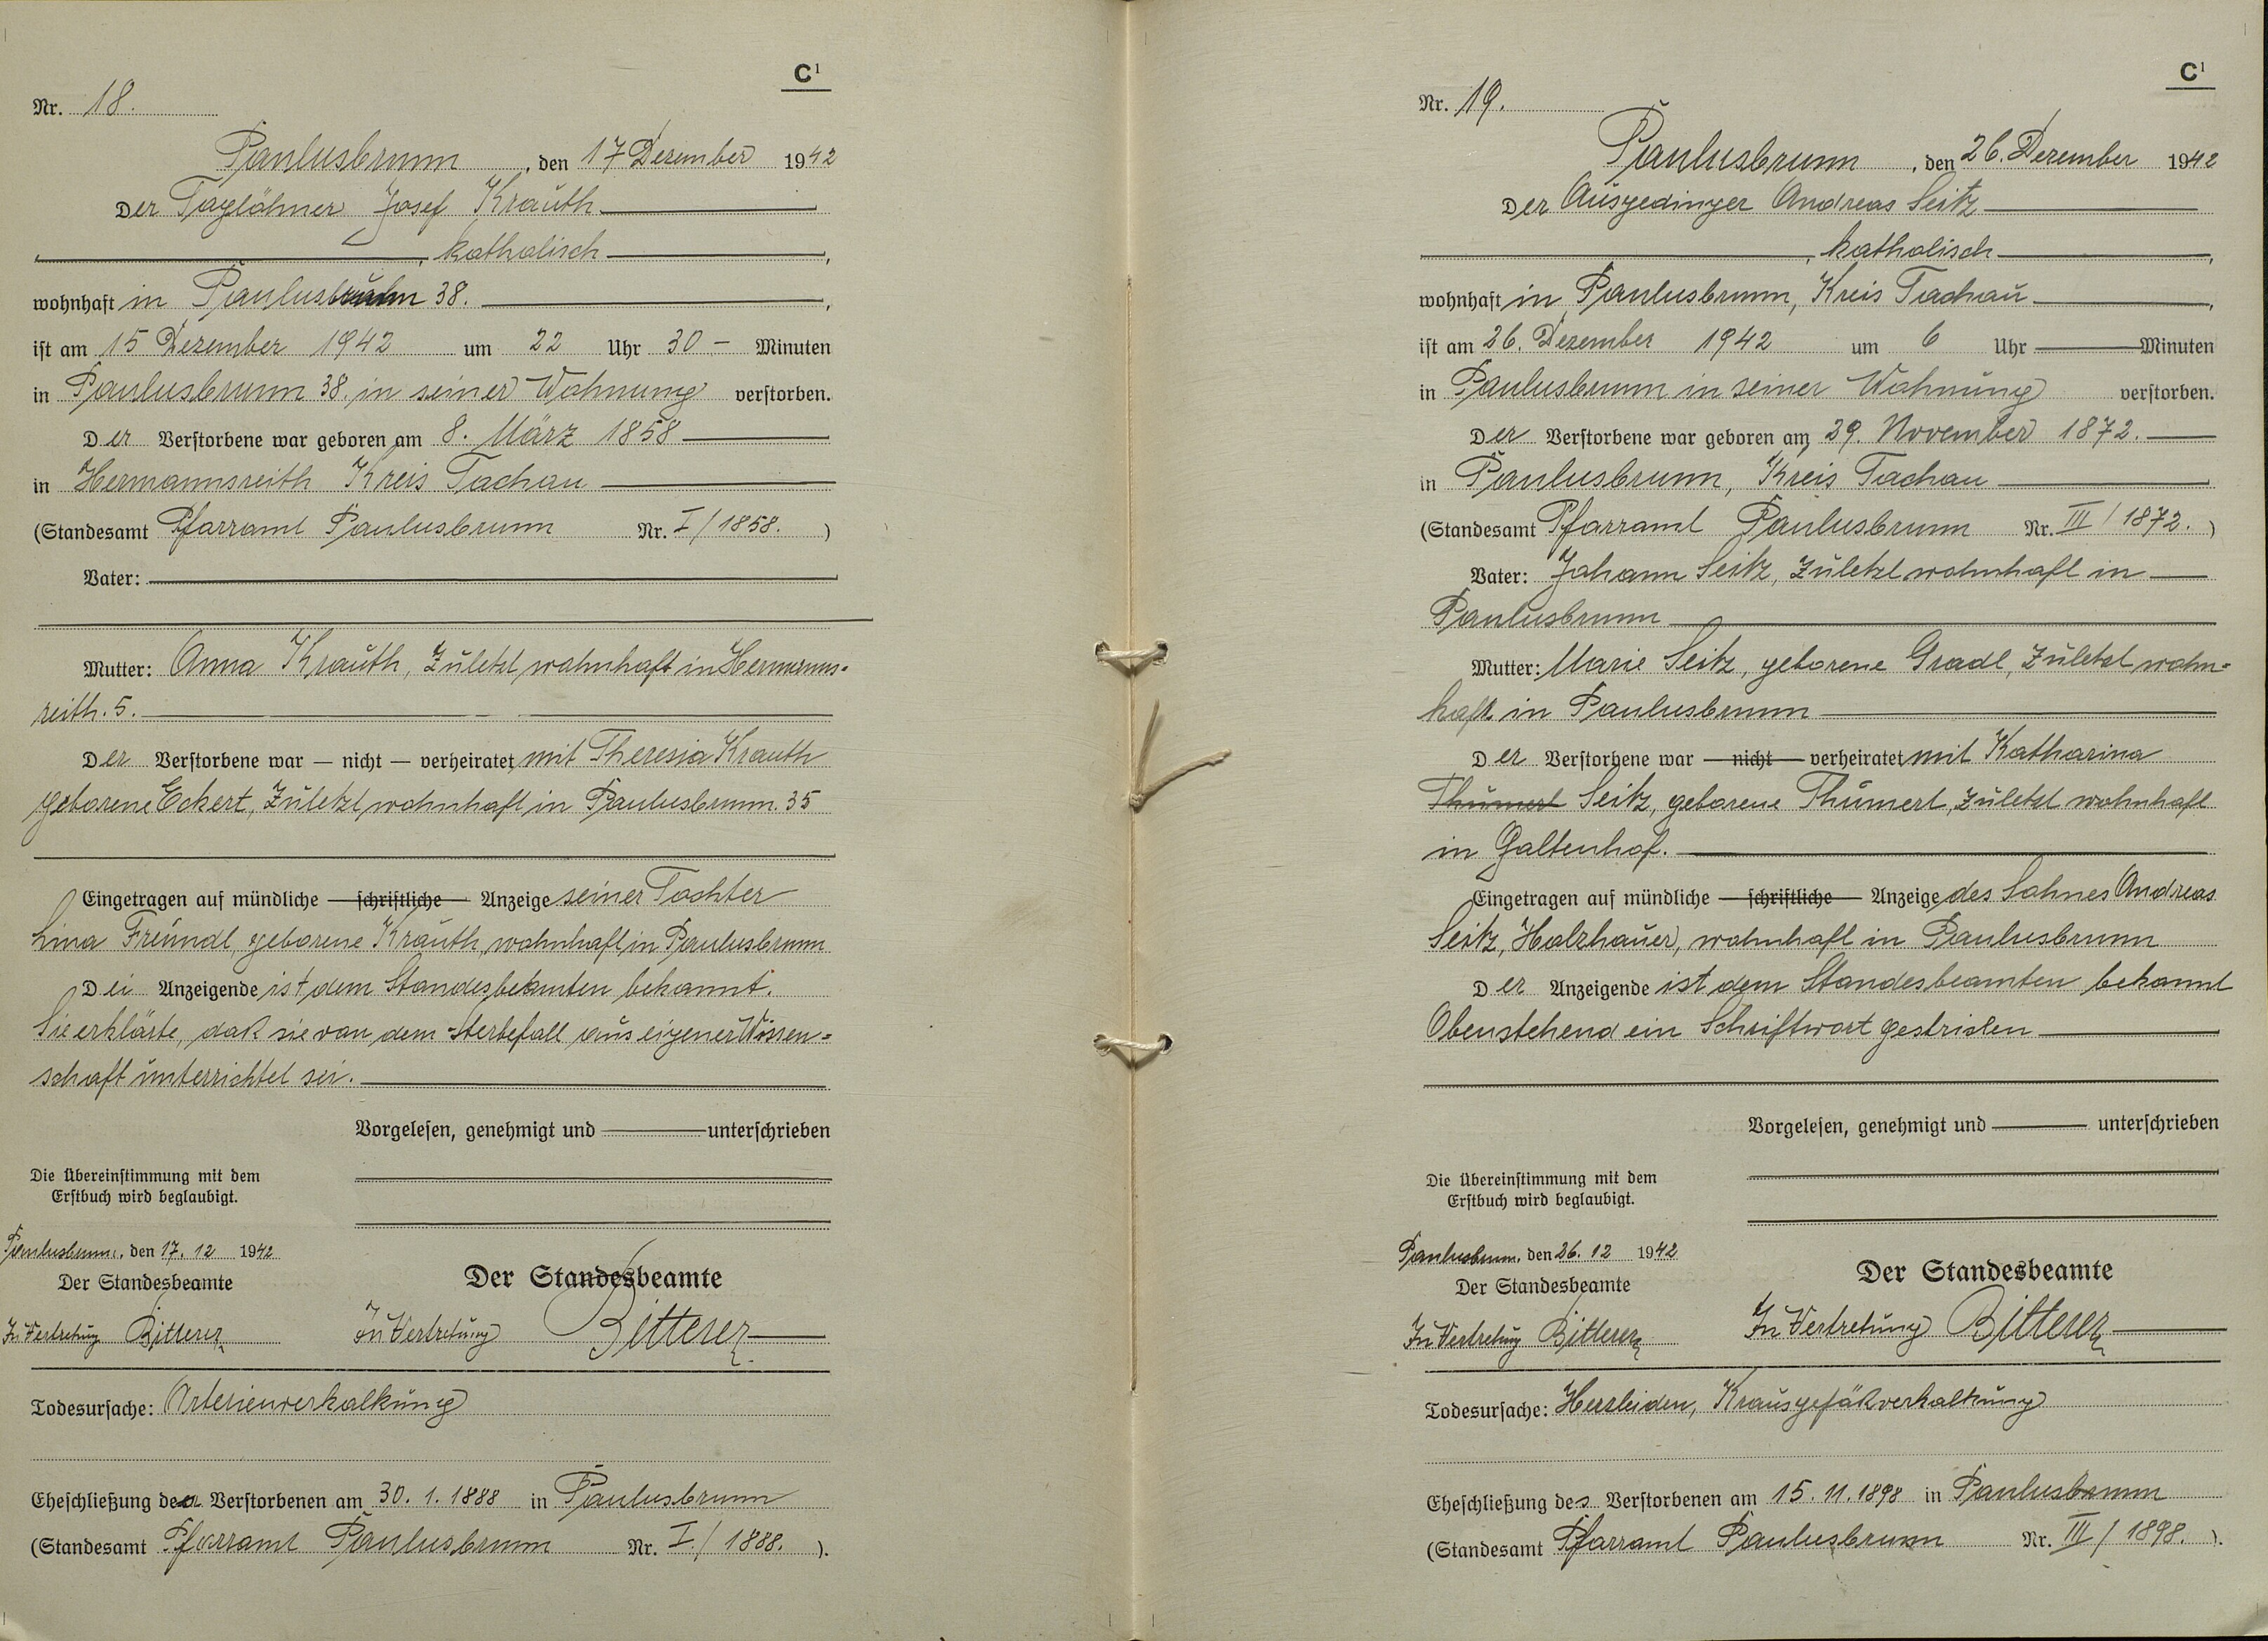 C¹
Nr. 18.
Paulusbrunn, den 17 Dezember 1942
Der Taglöhner Josef Krauth
, katholisch ,
wohnhaft in Paulusbrunn 38. ,
ist am 15 Dezember 1942 um 22 Uhr 30 – Minuten
in Paulusbrunn 38. in seiner Wohnung verstorben.
Der Verstorbene war geboren am 8. März 1858
in Hermannsreith Kreis Tachau
(Standesamt Pfarraml Paulusbrunn Nr. I/1858. )
Vater:
Mutter: Anna Krauth, Zuletzt wohnhaft in Hermanns-
reith. 5.
Der Verstorbene war — nicht — verheiratet mit Theresia Krauth
geborene Eckert, Zuletzt wohnhaft in Paulusbrunn 35
Eingetragen auf mündliche — schriftliche — Anzeige seiner Tochter
Lina Freundl, geborene Krauth, wohnhaft in Paulusbrunn
Dei Anzeigende ist dem Standesbeamten bekannt.
Sie erklärte, daß sie von dem Sterbefall aus eigener Wissen-
schaft unterrichtet sei.
Vorgelesen, genehmigt und unterschrieben
Die Übereinstimmung mit dem
Erstbuch wird beglaubigt.
Paulusbrunn, den 17. 12 1942
Der Standesbeamte
Der Standesbeamte
In Vertretung Bitterer
In Vertretung Bitterer
Todesursache: Arterienverkalkung
Eheschließung der Verstorbenen am 30. 1. 1888 in Paulusbrunn
(Standesamt Pfarraml Paulusbrunn Nr. I./1888. ).
C¹
Nr. 19.
Paulusbrunn, den 26. Dezember 1942
Der Ausgedinger Andreas Seitz
, katholisch ,
wohnhaft in Paulusbrunn, Kreis Tachau ,
ist am 26. Dezember 1942 um 6 Uhr — Minuten
in Paulusbrunn in seiner Wohnung verstorben.
Der Verstorbene war geboren am 29. November 1872.
in Paulusbrunn, Kreis Tachau
(Standesamt Pfarraml Paulusbrunn Nr. III/1872. )
Vater: Johann Seitz, Zuletzt wohnhaft in
Paulusbrunn
Mutter: Marie Seitz, geborene Gradl, Zuletzt wohn-
haft in Paulusbrunn
Der Verstorbene war — nicht — verheiratet mit Katharina
Thümerl Seitz, geborene Thümerl, Zuletzt wohnhaft
in Galtenhof.
Eingetragen auf mündliche — schriftliche — Anzeige des Sohnes Andreas
Seitz, Holzhauer, wohnhaft in Paulusbrunn
Der Anzeigende ist dem Standesbeamten bekannt
Obenstehend ein Schriftwort gestrichen
Vorgelesen, genehmigt und unterschrieben
Die Übereinstimmung mit dem
Erstbuch wird beglaubigt.
Paulusbrunn, den 26. 12 1942
Der Standesbeamte
Der Standesbeamte
In Vertretung Bitterer
In Vertretung Bitterer
Todesursache: Herzleiden, Kranzgefäßverkalkung
Eheschließung des Verstorbenen am 15. 11. 1898 in Paulusbrunn
(Standesamt Pfarraml Paulusbrunn Nr. III/1898. ).